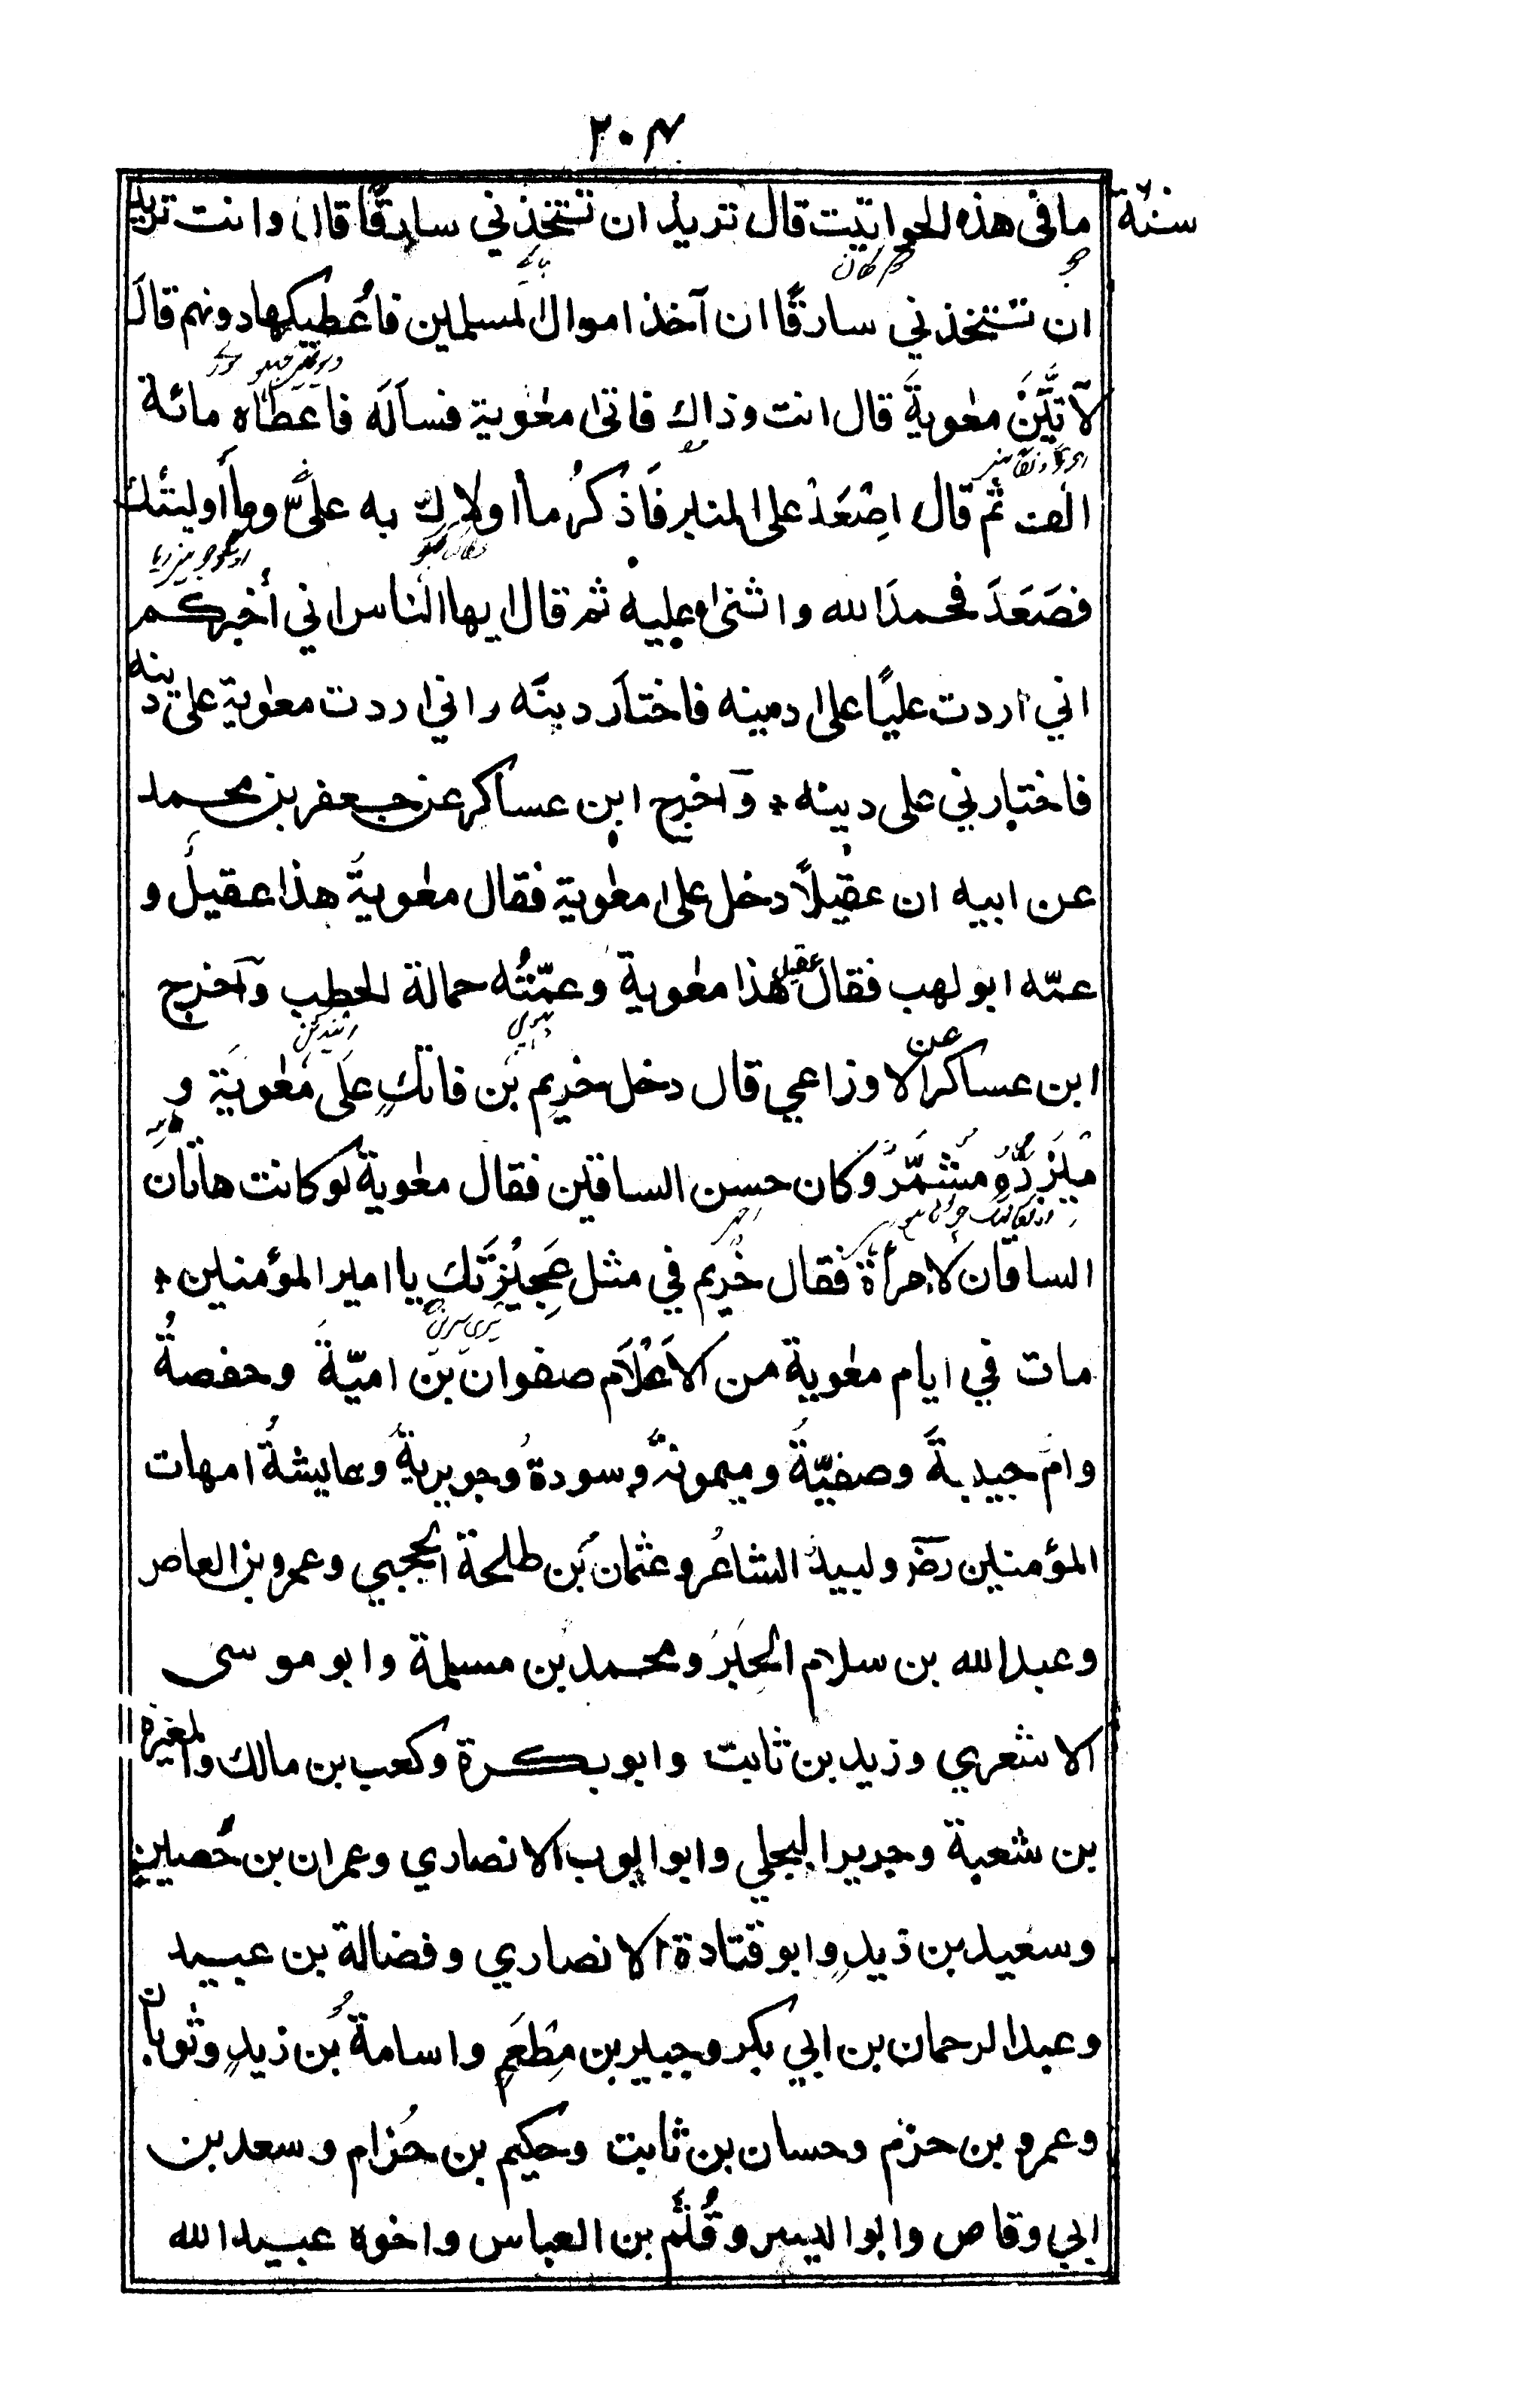 ۲۰۴
سنة
ما فى هذه الحوانيت قال تريد ان تتخذني سارقًا قال وانت تريد
ان تتخذني سارقًا ان آخذ اموال المسلمين فاُعطيكها دونهم قال
لآتيَنَّ معٰويةَ قال انت وذاك فاتى معٰوية فسألَه فاعطاه مائة
الف ثم قال اِصْعَدْ على المنبر فَاذكُر ما اولاك به عليٌّ وما أوليتك
فصَعَدَ فحمدَ الله واثنى عليه ثم قال ايها الناس اني أخبركم
اني اردت عليًا على دينه فاختار دينَه واني اردت معٰوية على دينه
فاختارني على دينه * وآخرج ابن عساكر عن جعفر بن محمد
عن ابيه ان عقيلًا دخل على معٰوية فقال معٰويةُ هذا عقيلٌ و
عمّه ابو لهب فقال عقيل هذا معٰوية وعمّتُه حمالة الحطب وآخرج
ابن عساكر عن الاوزاعي قال دخل خريم بن فاتكٍ على معٰوية و
مِيْزَرُهُ مُشَمَّرٌ وكان حسن الساقين فقال معٰوية لو كانت هاتان
الساقان لامرأة فقال خُريم في مثل عَجِيْزَتك يا امير المؤمنين *
مات في ايام معٰوية من الاَعْلَام صفوان بن اميّةَ وحفصةُ
وام حبيبةَ وصفيّةُ وميمونةُ وسودةُ وجويريةُ وعايشةُ امهات
المؤمنين رضٓ ولبيدُ الشاعرُ وعثمانُ بن طلحة الحجبي وعمرو بن العاص
وعبد الله بن سلام الحَبْرُ ومحمد بن مسلمة وابو موسى
الاشعري وزيد بن ثابت وابو بكرة وكعب بن مالك والمغيرة
بن شعبة وجرير البجلي وابو ايوب الانصاري وعمران بن حُصين
وسعيد بن زيدٍ وابو قتادة الانصاري وفضالة بن عبيد
وعبد الرحمان بن ابي بكر وجبير بن مطعَم واسامةُ بن زيدٍ وثوبان
وعمرو بن حزم وحسان بن ثابت وحكيم بن حُزام وسعد بن
ابي وقاص وابو اليسر وقُثَم بن العباس واخوه عبيد الله